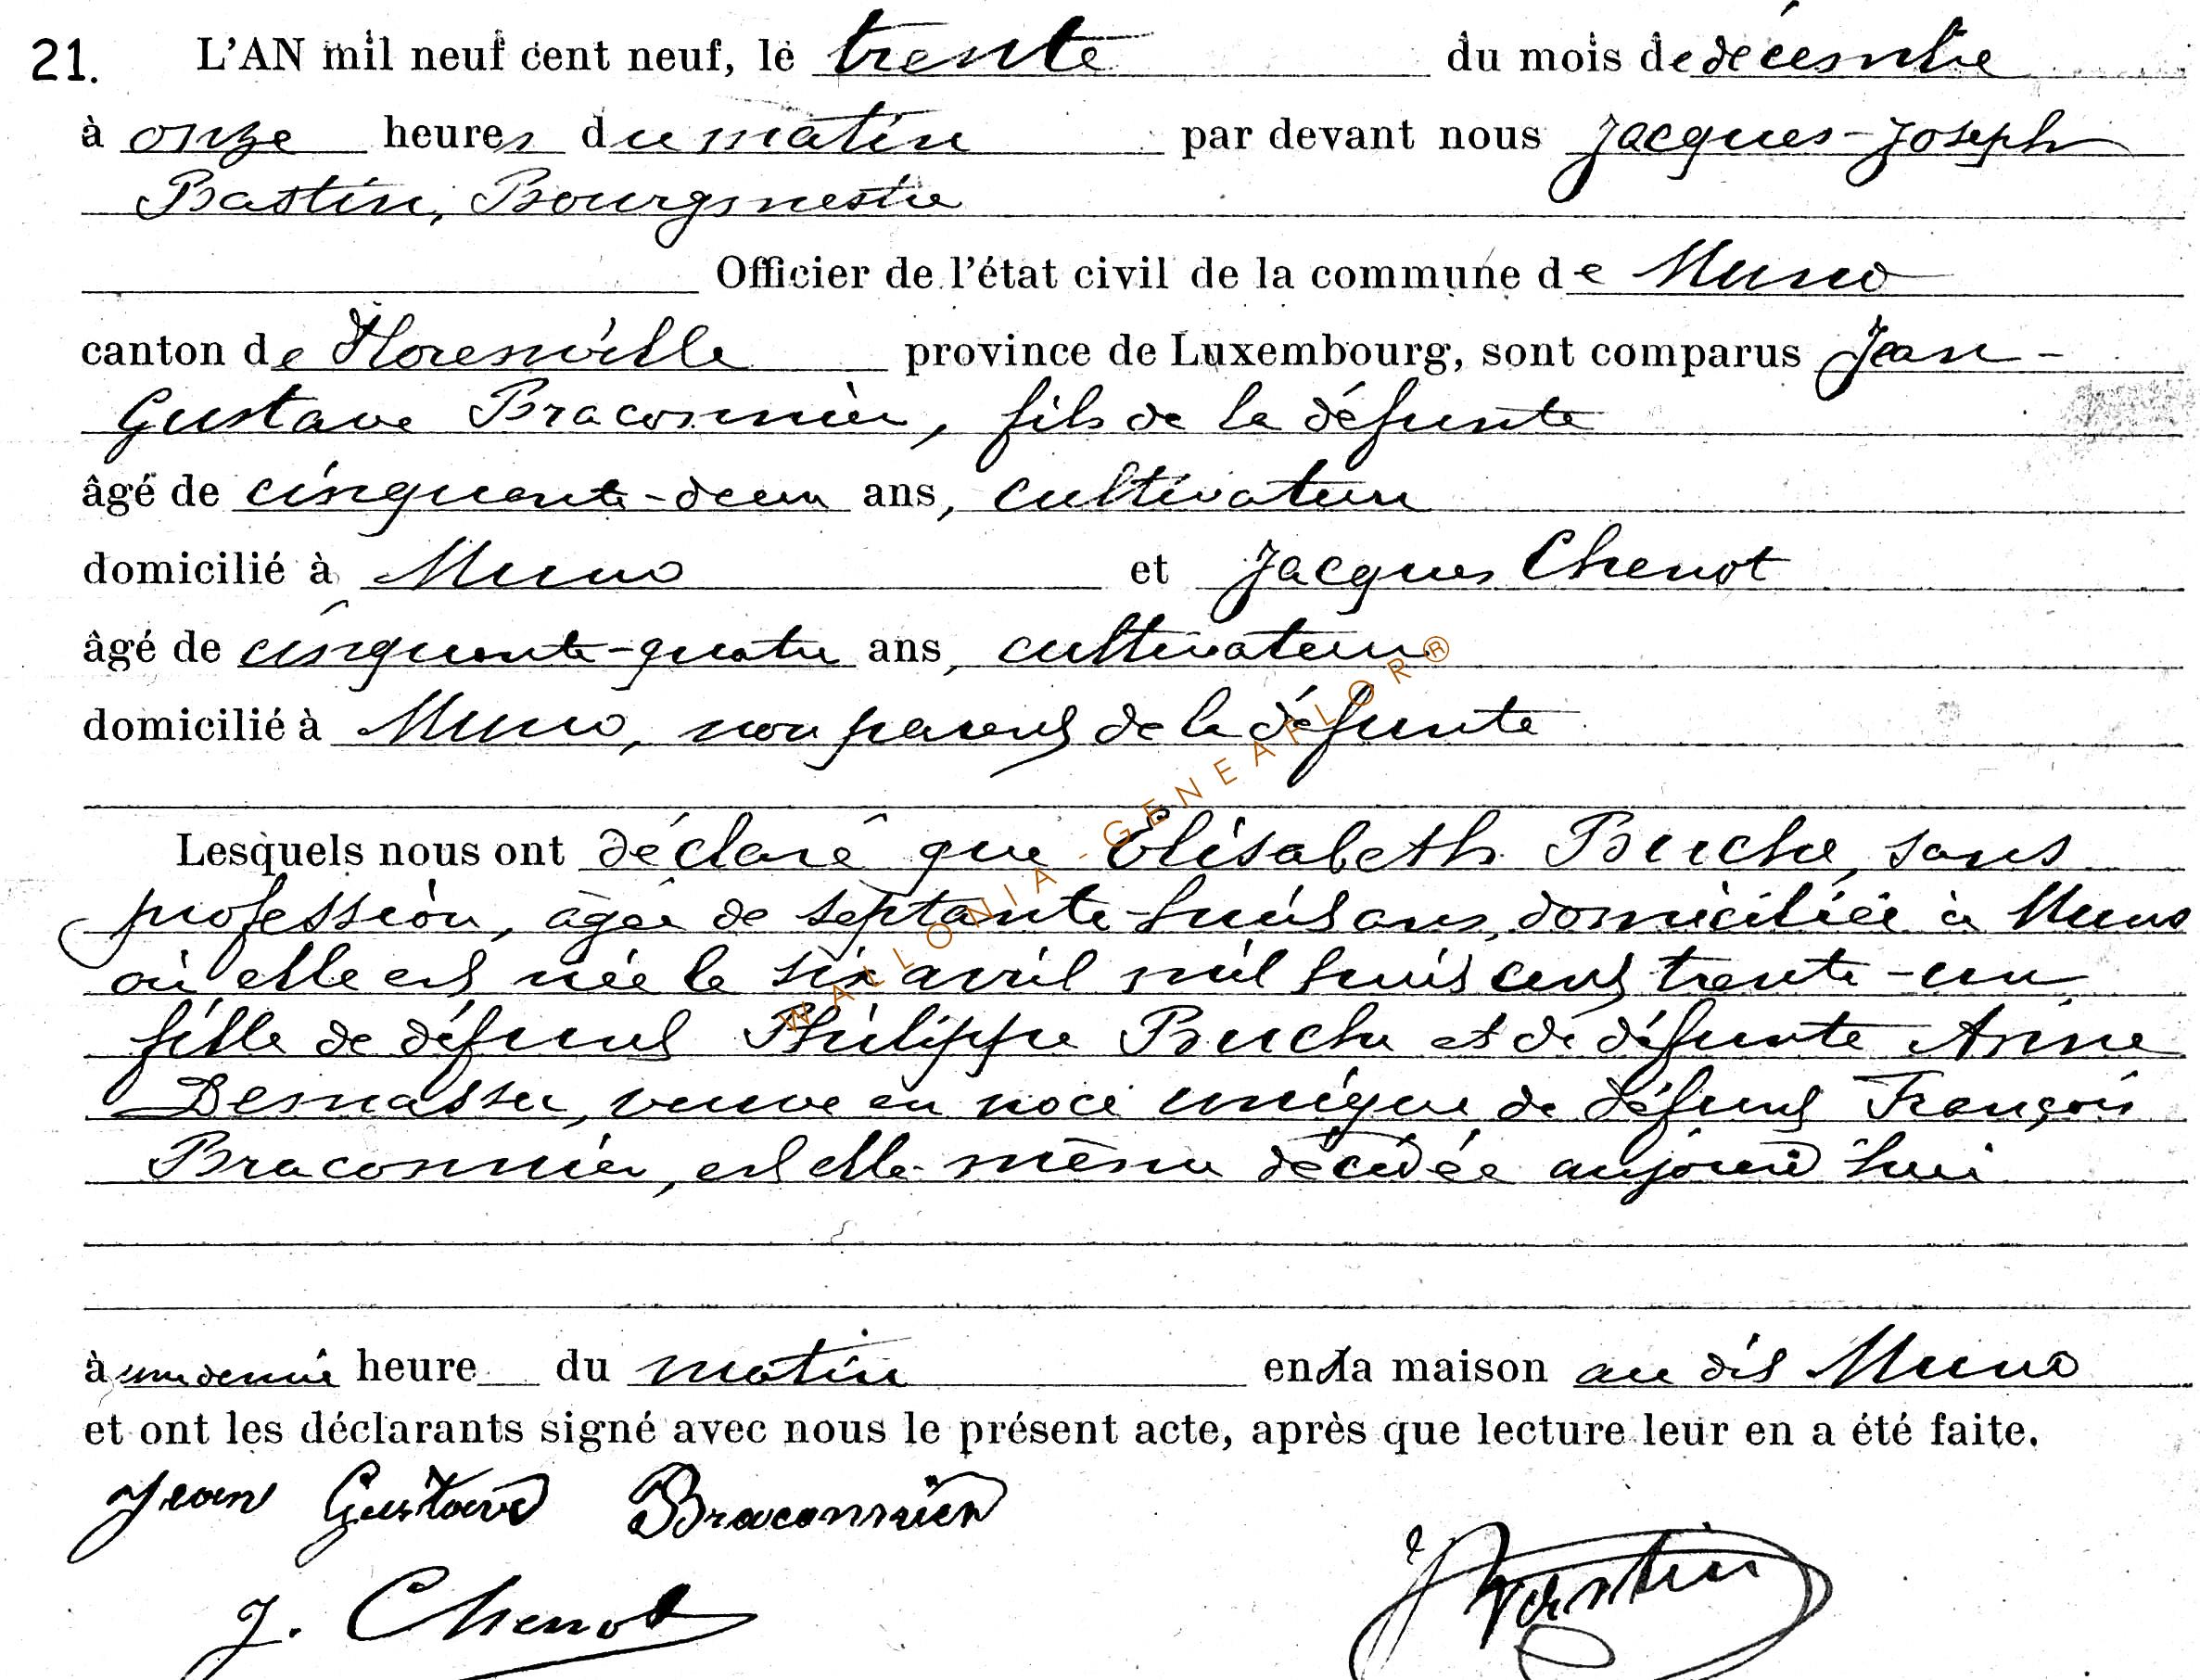 21. L'AN mil neuf cent neuf, le trente du mois de décembre
à onze heures du matin par devant nous Jacques-Joseph
Bastin, Bourgmestre
Officier de l'état civil de la commune de Muno
canton de Florenville province de Luxembourg, sont comparus Jean-
Gustave Braconnier, fils de la défunte
âgé de cinquante-deux ans, cultivateur
domicilié à Muno et Jacques Chenot
âgé de cinquante-quatre ans, cultivateur
domicilié à Muno, non parent de la défunte
Lesquels nous ont déclaré que Elisabeth Buche, sans
profession, âgée de septante-huit ans, domiciliée à Muno
où elle est née le six avril mil huit cent trente-un
fille de défunt Philippe Buche et de défunte Anne
Demasser, veuve en noce unique de défunt François
Braconnier, est elle-même décédée aujourd'hui
à une demie heure du matin en sa maison au dit Muno
et ont les déclarants signé avec nous le présent acte, après que lecture leur en a été faite.
Jean Gustave Braconnier
J. Chenot
J Bastin
WALLONIA - GENEAFLOR®